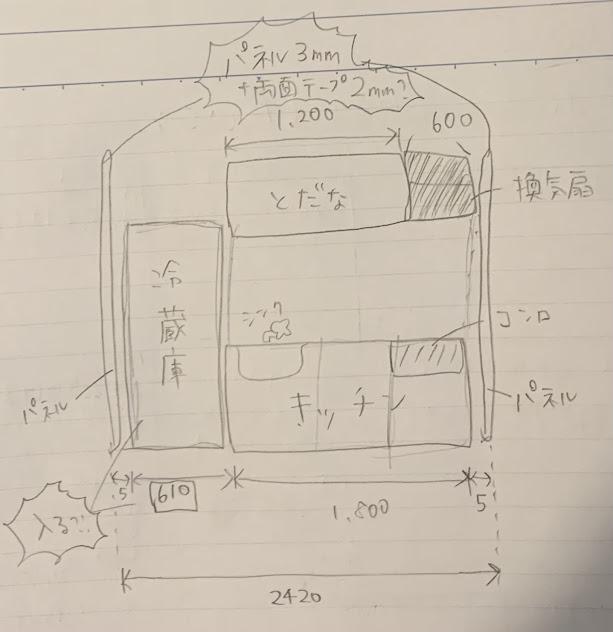 パネル3mm
+両面テープ2mm?
1,200
600
とだな
換気扇
冷蔵庫
シンク
コンロ
キッチン
パネル
パネル
入る?!
5
610
1,800
5
2420